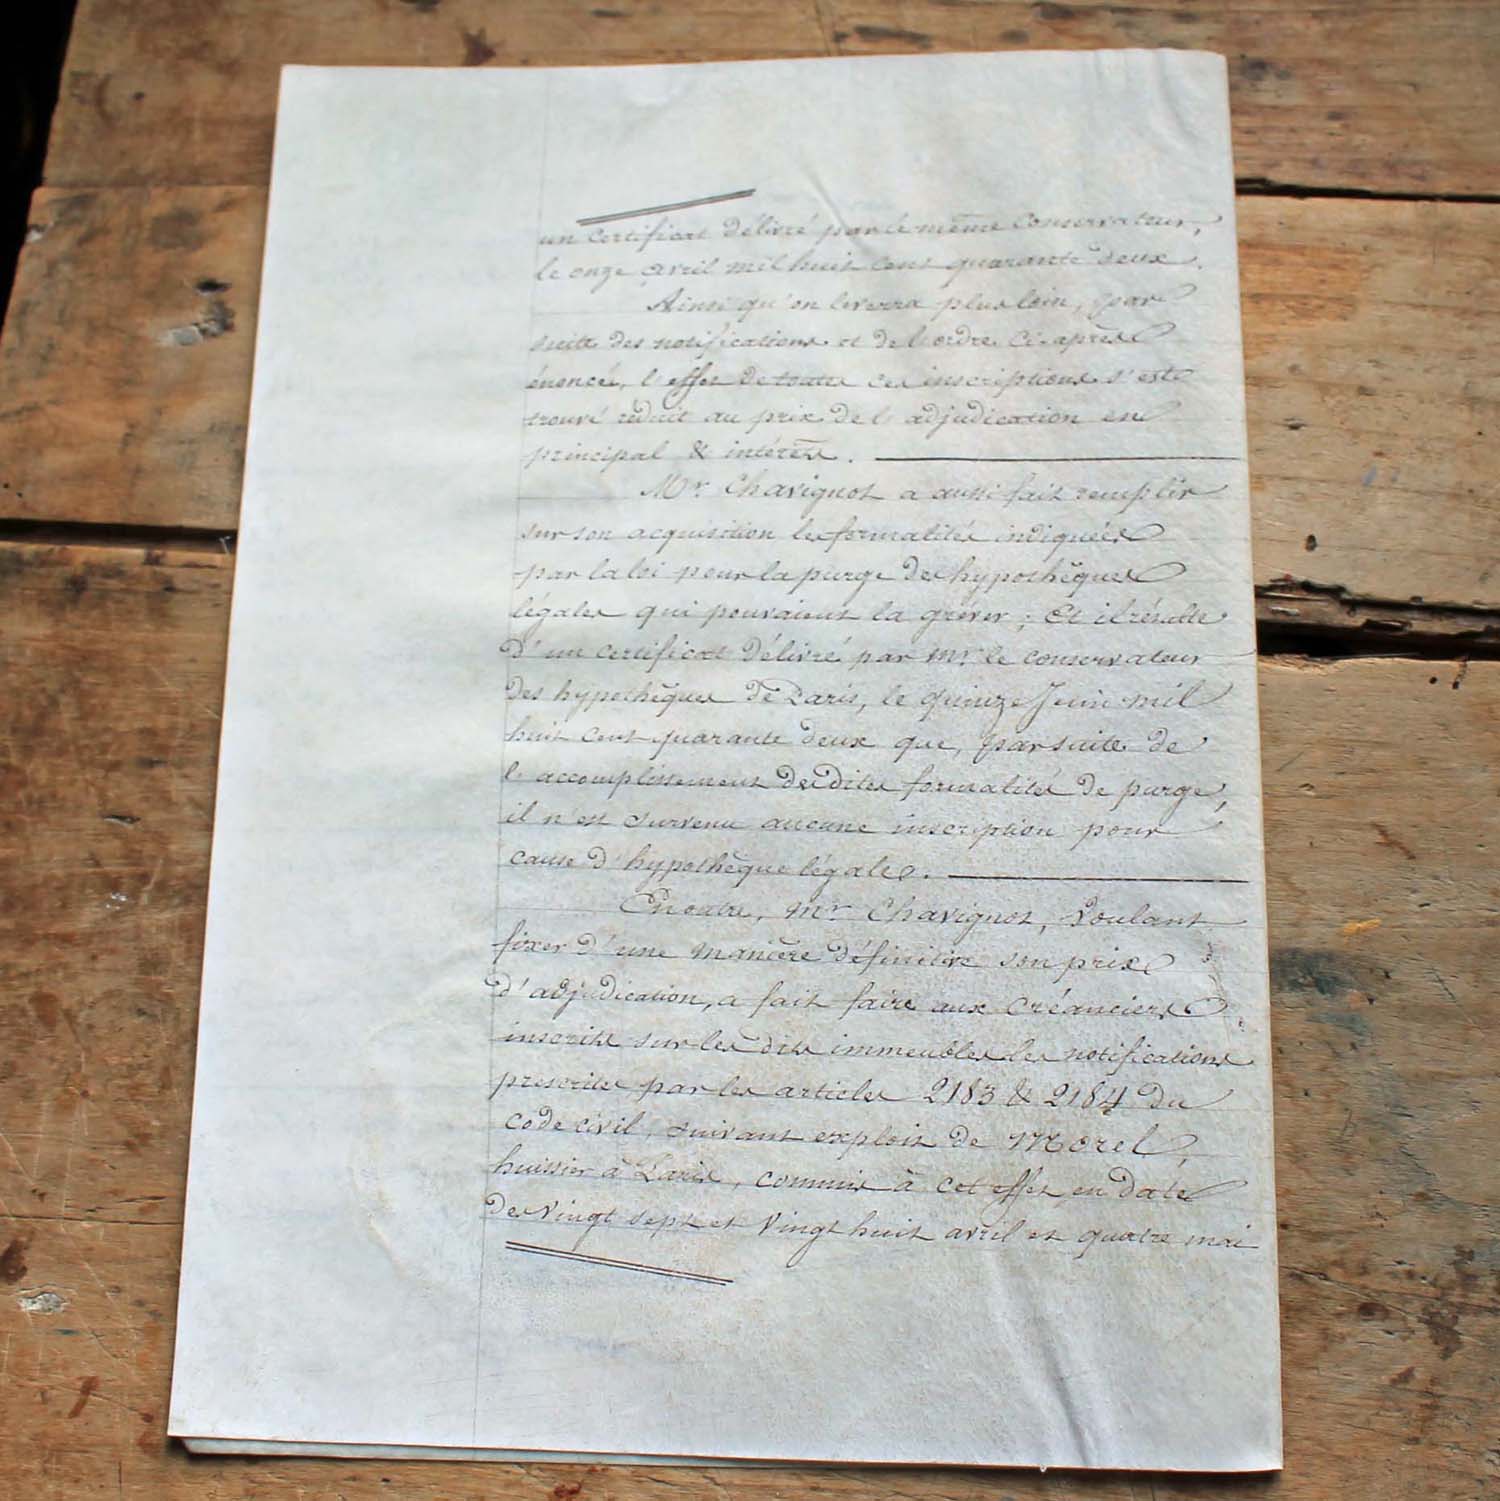 un certificat délivré par le même Conservateur,
le onze avril mil huit cent quarante deux.
Ainsi qu'on le verra plus loin, par
suite des notifications et de l'ordre ci-après
énoncés, l'effet de toutes ces inscriptions s'est
trouvé réduit au prix de l'adjudication en
principal & intérêts.
Mr. Chavignot a aussi fait remplir
sur son acquisition les formalités indiquées
par la loi pour la purge des hypothèques
légales qui pouvaient la gréver ; Et il résulte
d'un certificat délivré par Mr. le conservateur
des hypothèques de Paris, le quinze Juin mil
huit cent quarante deux que, par suite de
l'accomplissement desdites formalités de purge,
il n'est survenu aucune inscription pour
cause d'hypothèque légale.
En outre, Mr. Chavignot, Voulant
fixer d'une manière définitive son prix
d'adjudication, a fait faire aux créanciers
inscrits sur les dits immeubles les notifications
prescrites par les articles 2183 & 2184 du
code civil, suivant exploit de Morel,
huissier à Paris, commis à cet effet, en date
des vingt sept et vingt huit avril et quatre mai